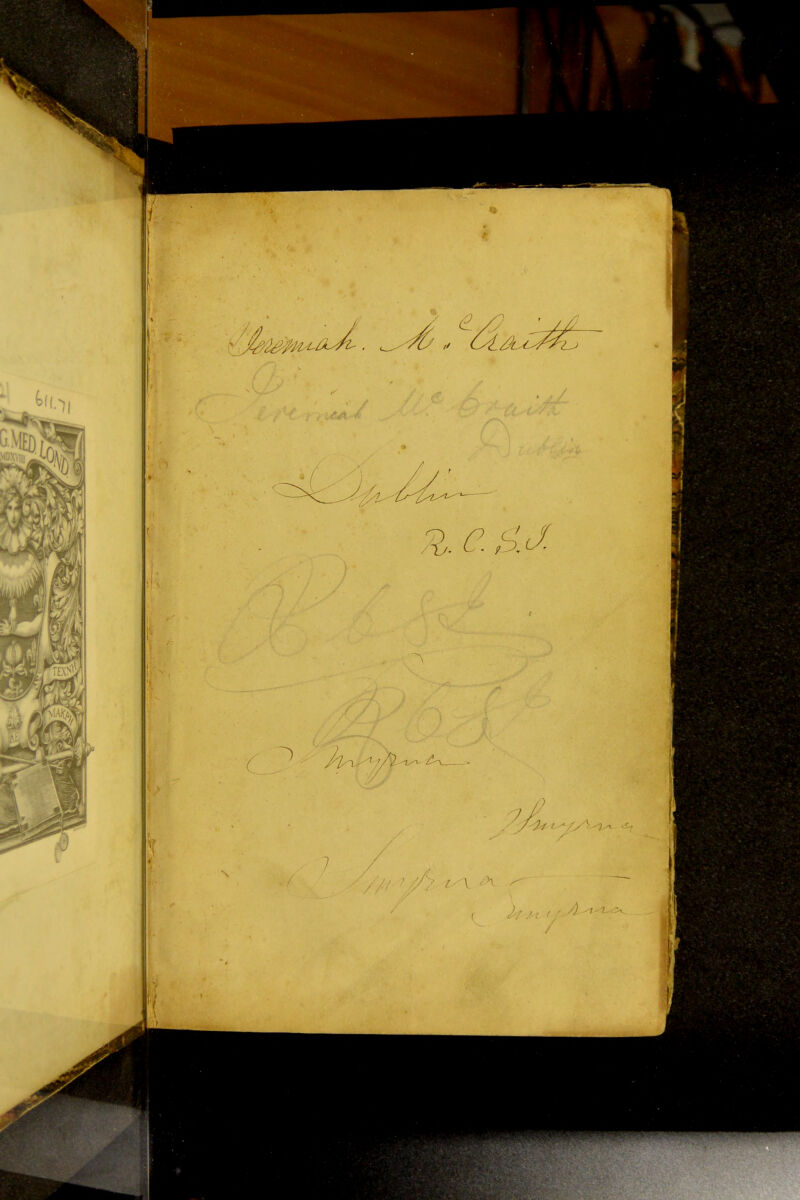 611.71
G. MED LOND
MDXVIII
TEXNH
MAKPH
Jeremiah. Mc. Craith
Jeremiah Mc Craith
Dublin
Dublin
R. C. S. I.
R C S I
R C S I
Smyrna
Smyrna
Smyrna
Smyrna